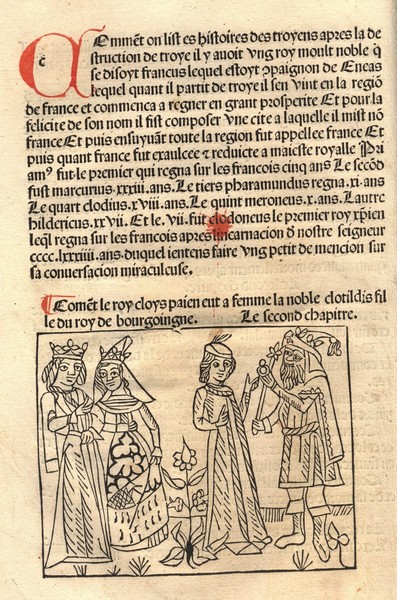 Cõmẽt on list es histoires des troyens apres la de
struction de troye il y auoit vng roy moult noble q̃
se disoyt francus lequel estoyt cõpaignon de Eneas
lequel quant il partit de troye il sen vint en la regiõ
de france et commenca a regner en grant prosperite Et pour la
felicite de son nom il fist composer vne cite a laquelle il mist nõ
france Et puis ensuyuãt toute la region fut appellee france Et
puis quant france fut exaulcee ⁊ reduicte a maieste royalle Pri
am⁹ fut le premier qui regna sur les francois cinq ans Le secõd
fust marcurus.xxxiii.ans.Le tiers pharamundus regna.xi.ans
Le quart clodius.xviii.ans.Le quint meroneus.x.ans.Lautre
hildericus.xxvii. Et le .vii. fut clodoneus le premier roy xp̃ien
leq̃l regna sur les francois apres lincarnacion d̃ nostre seigneur
cccc.lxxxiiii.ans.duquel ientens faire vng petit de mencion sur
sa conuersacion miraculeuse.
¶ Comẽt le roy cloys paien eut a femme la noble clotildis fil
le du roy de bourgoingne. Le second chapitre.